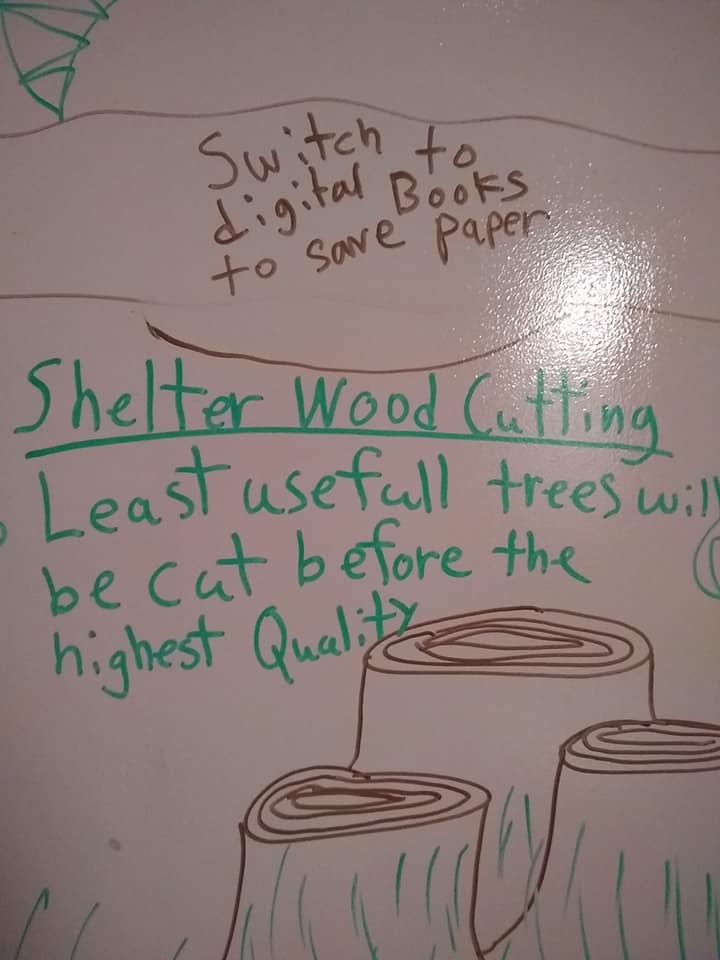 Switch to
digital Books
to save paper
Shelter Wood Cutting
Least usefull trees will
be cut before the
highest Quality